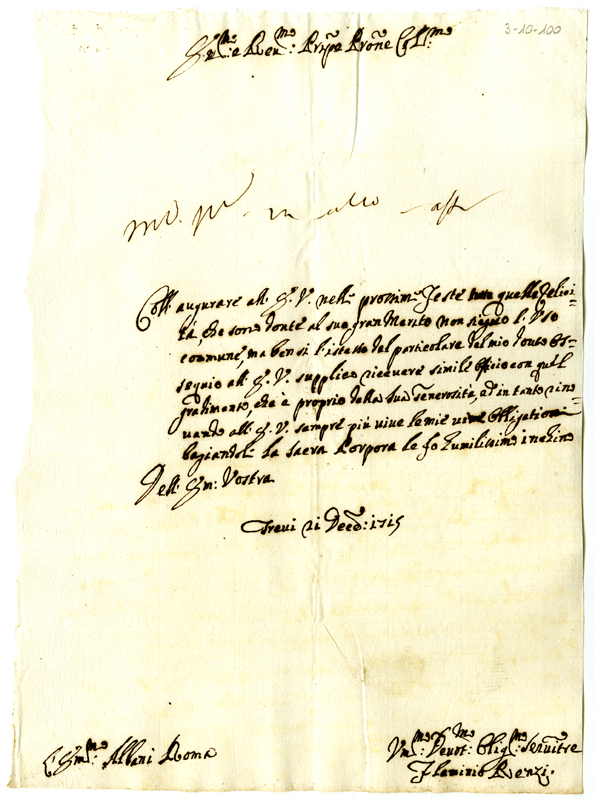 3-10-100
Em:mo e Rev:mo Prñpe Prõne Col:mo
in alio
Coll' augurare all' Em: V. nelle prossime Feste tutte quelle Felici=
tà, che sono dovute al suo gran Merito non sieguo l'Uso
commune, ma bensì l'istesso del particolare del mio dovuto Os=
sequio all' Em. V. supplico ricevere simile Officio con quel
gradimento, che è proprio della Sua Generosità, ed in tanto vino=
vando all' Em. V. sempre più vive le mie Obligationi
bagiandole la Sacra Porpora le fo humilissimo inchino
Dell' Em: Vostra
Trevi 21 Decẽ: 1715
E:mo Albani Roma
Um:mo Devot:mo Oblig:mo Servitre
Flaminio Renzi